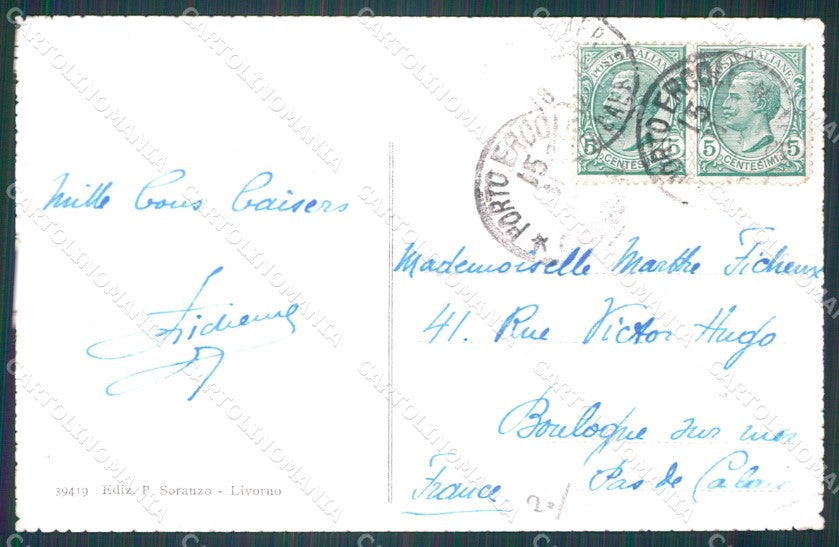 POSTE ITALIANE
5 CENTESIMI 5
POSTE ITALIANE
5 CENTESIMI 5
PORTO ERCO
15
PORTO ERCO
15
Mille bons baisers
Mademoiselle Marthe Ficheux
41. Rue Victor Hugo
Boulogne sur mer
Pas de Calais
France
39419 Ediz. P. Soranzo - Livorno
CARTOLINOMANIA